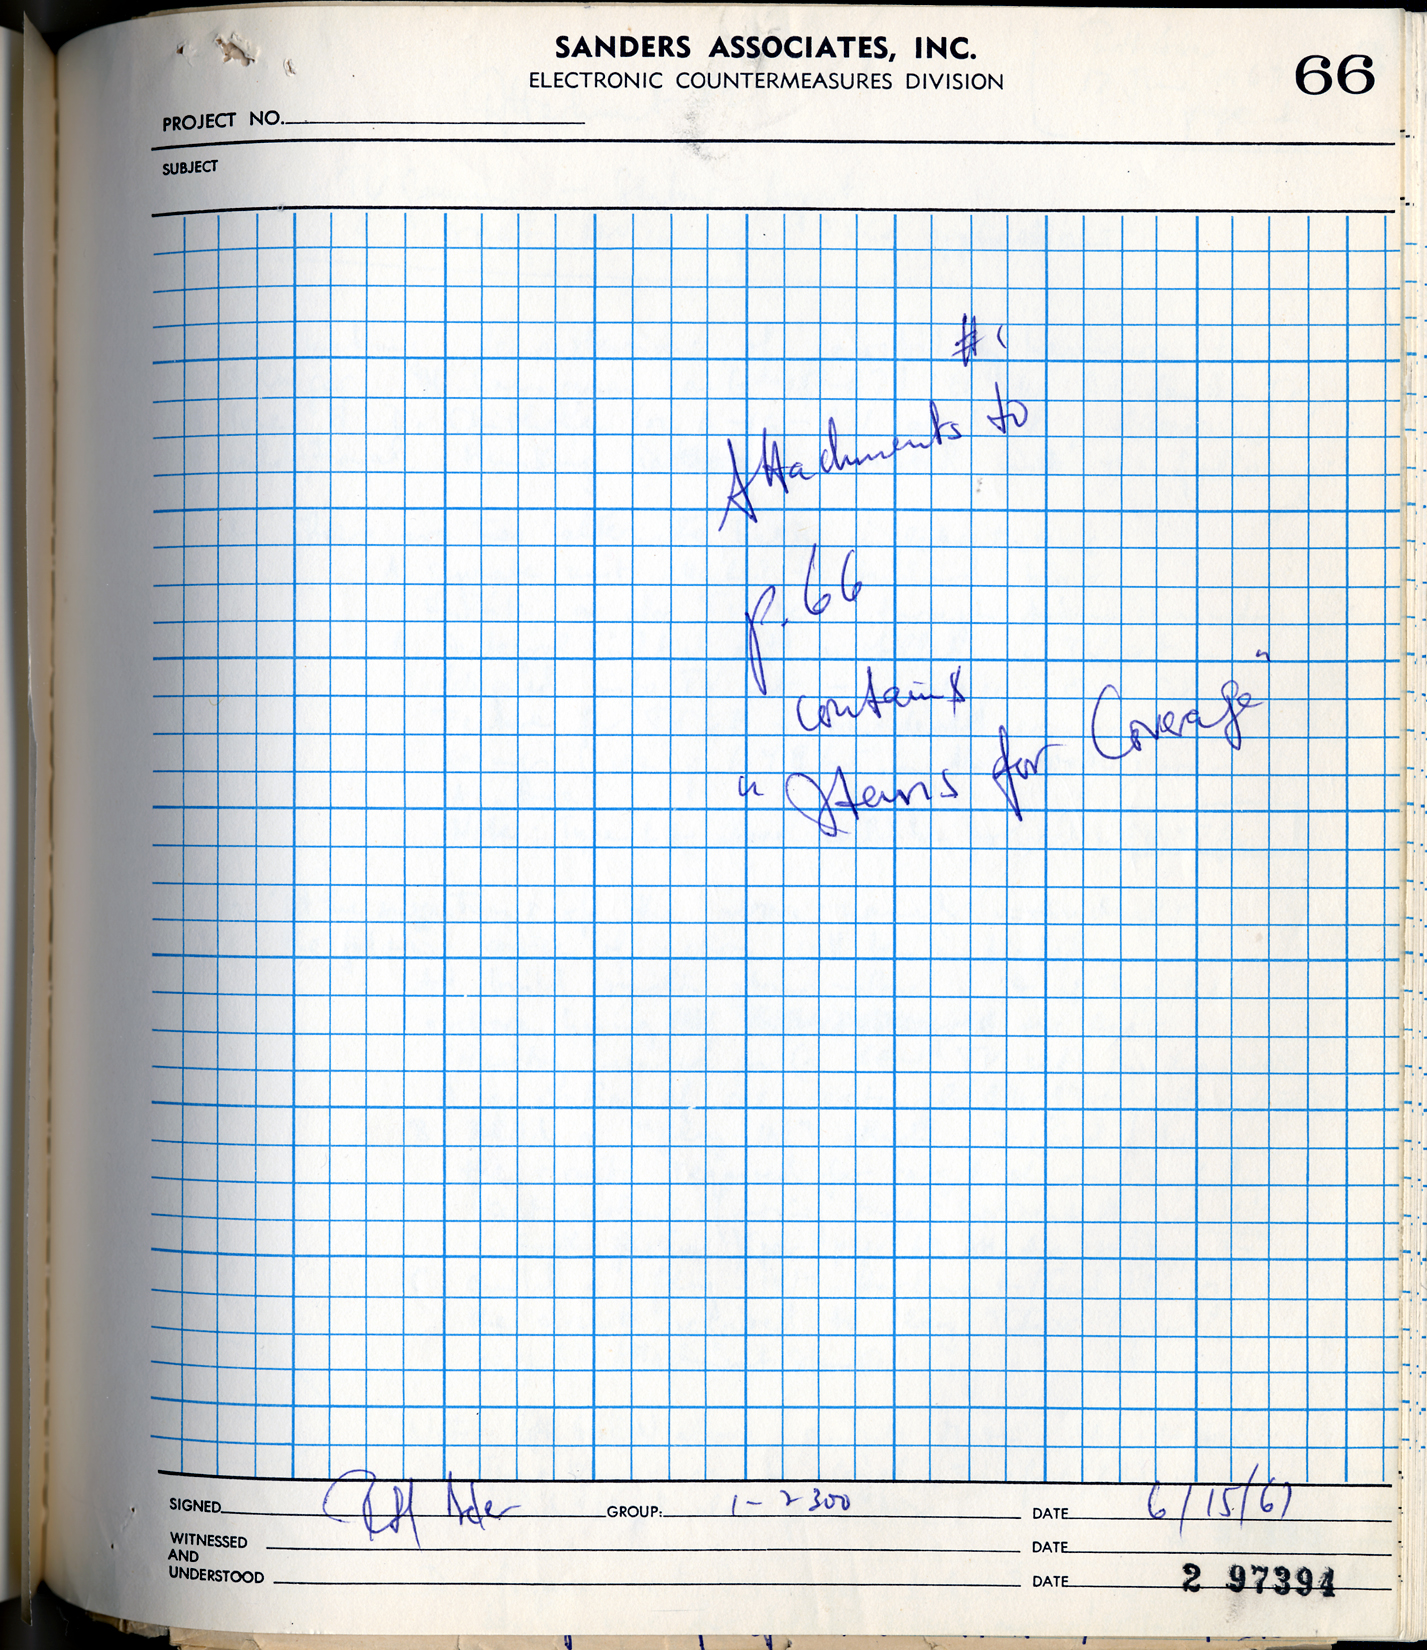 SANDERS ASSOCIATES, INC.
ELECTRONIC COUNTERMEASURES DIVISION
66
PROJECT NO.
SUBJECT
#1
Attachments to
p. 66
contains
" Items for Coverage "
SIGNED GROUP: 1-2300 DATE 6/15/67
WITNESSED DATE
AND
UNDERSTOOD DATE 2 97394